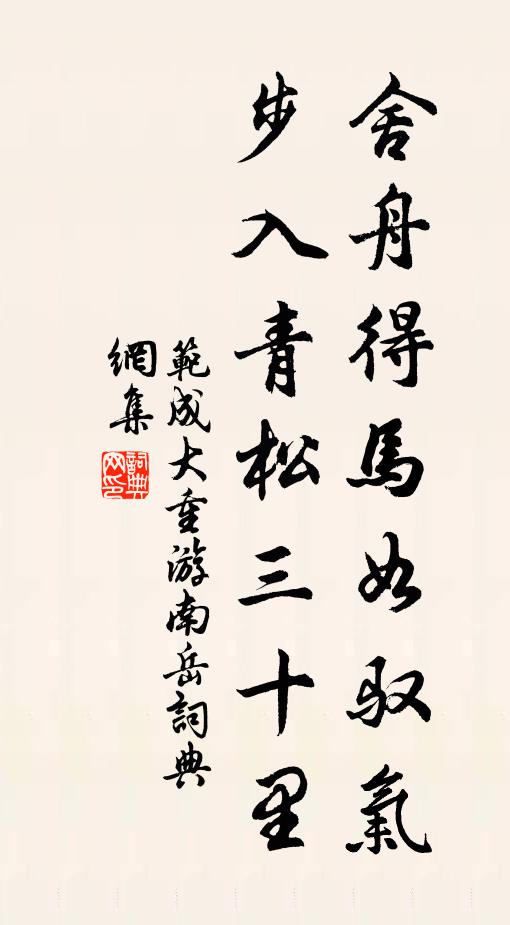 舍舟得馬如馭氣
步入青松三十里
範成大重游南岳詞典
網集
詞典网印